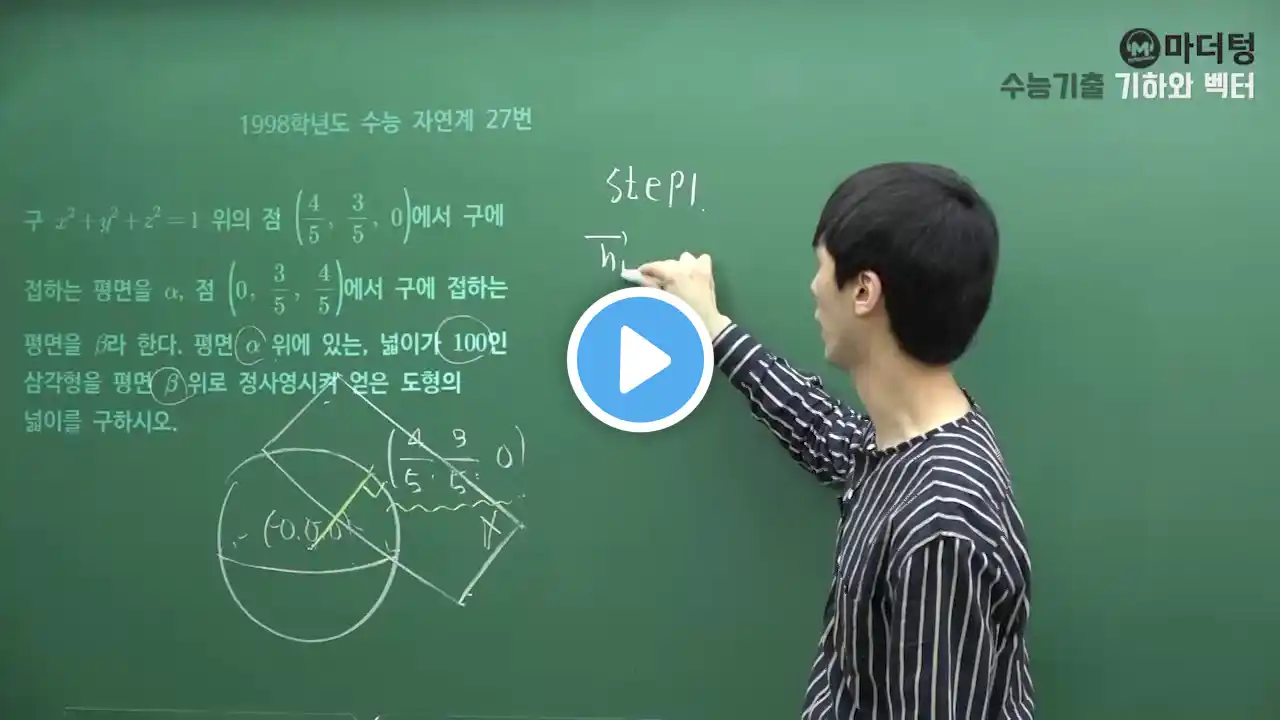 마더텅
수능기출 기하와 벡터
1998학년도 수능 자연계 27번
구 x²+y²+z²=1 위의 점 (4/5, 3/5, 0)에서 구에
접하는 평면을 α, 점 (0, 3/5, 4/5)에서 구에 접하는
평면을 β라 한다. 평면 α 위에 있는, 넓이가 100인
삼각형을 평면 β 위로 정사영시켜 얻은 도형의
넓이를 구하시오.
step1.
(4/5, 3/5, 0)